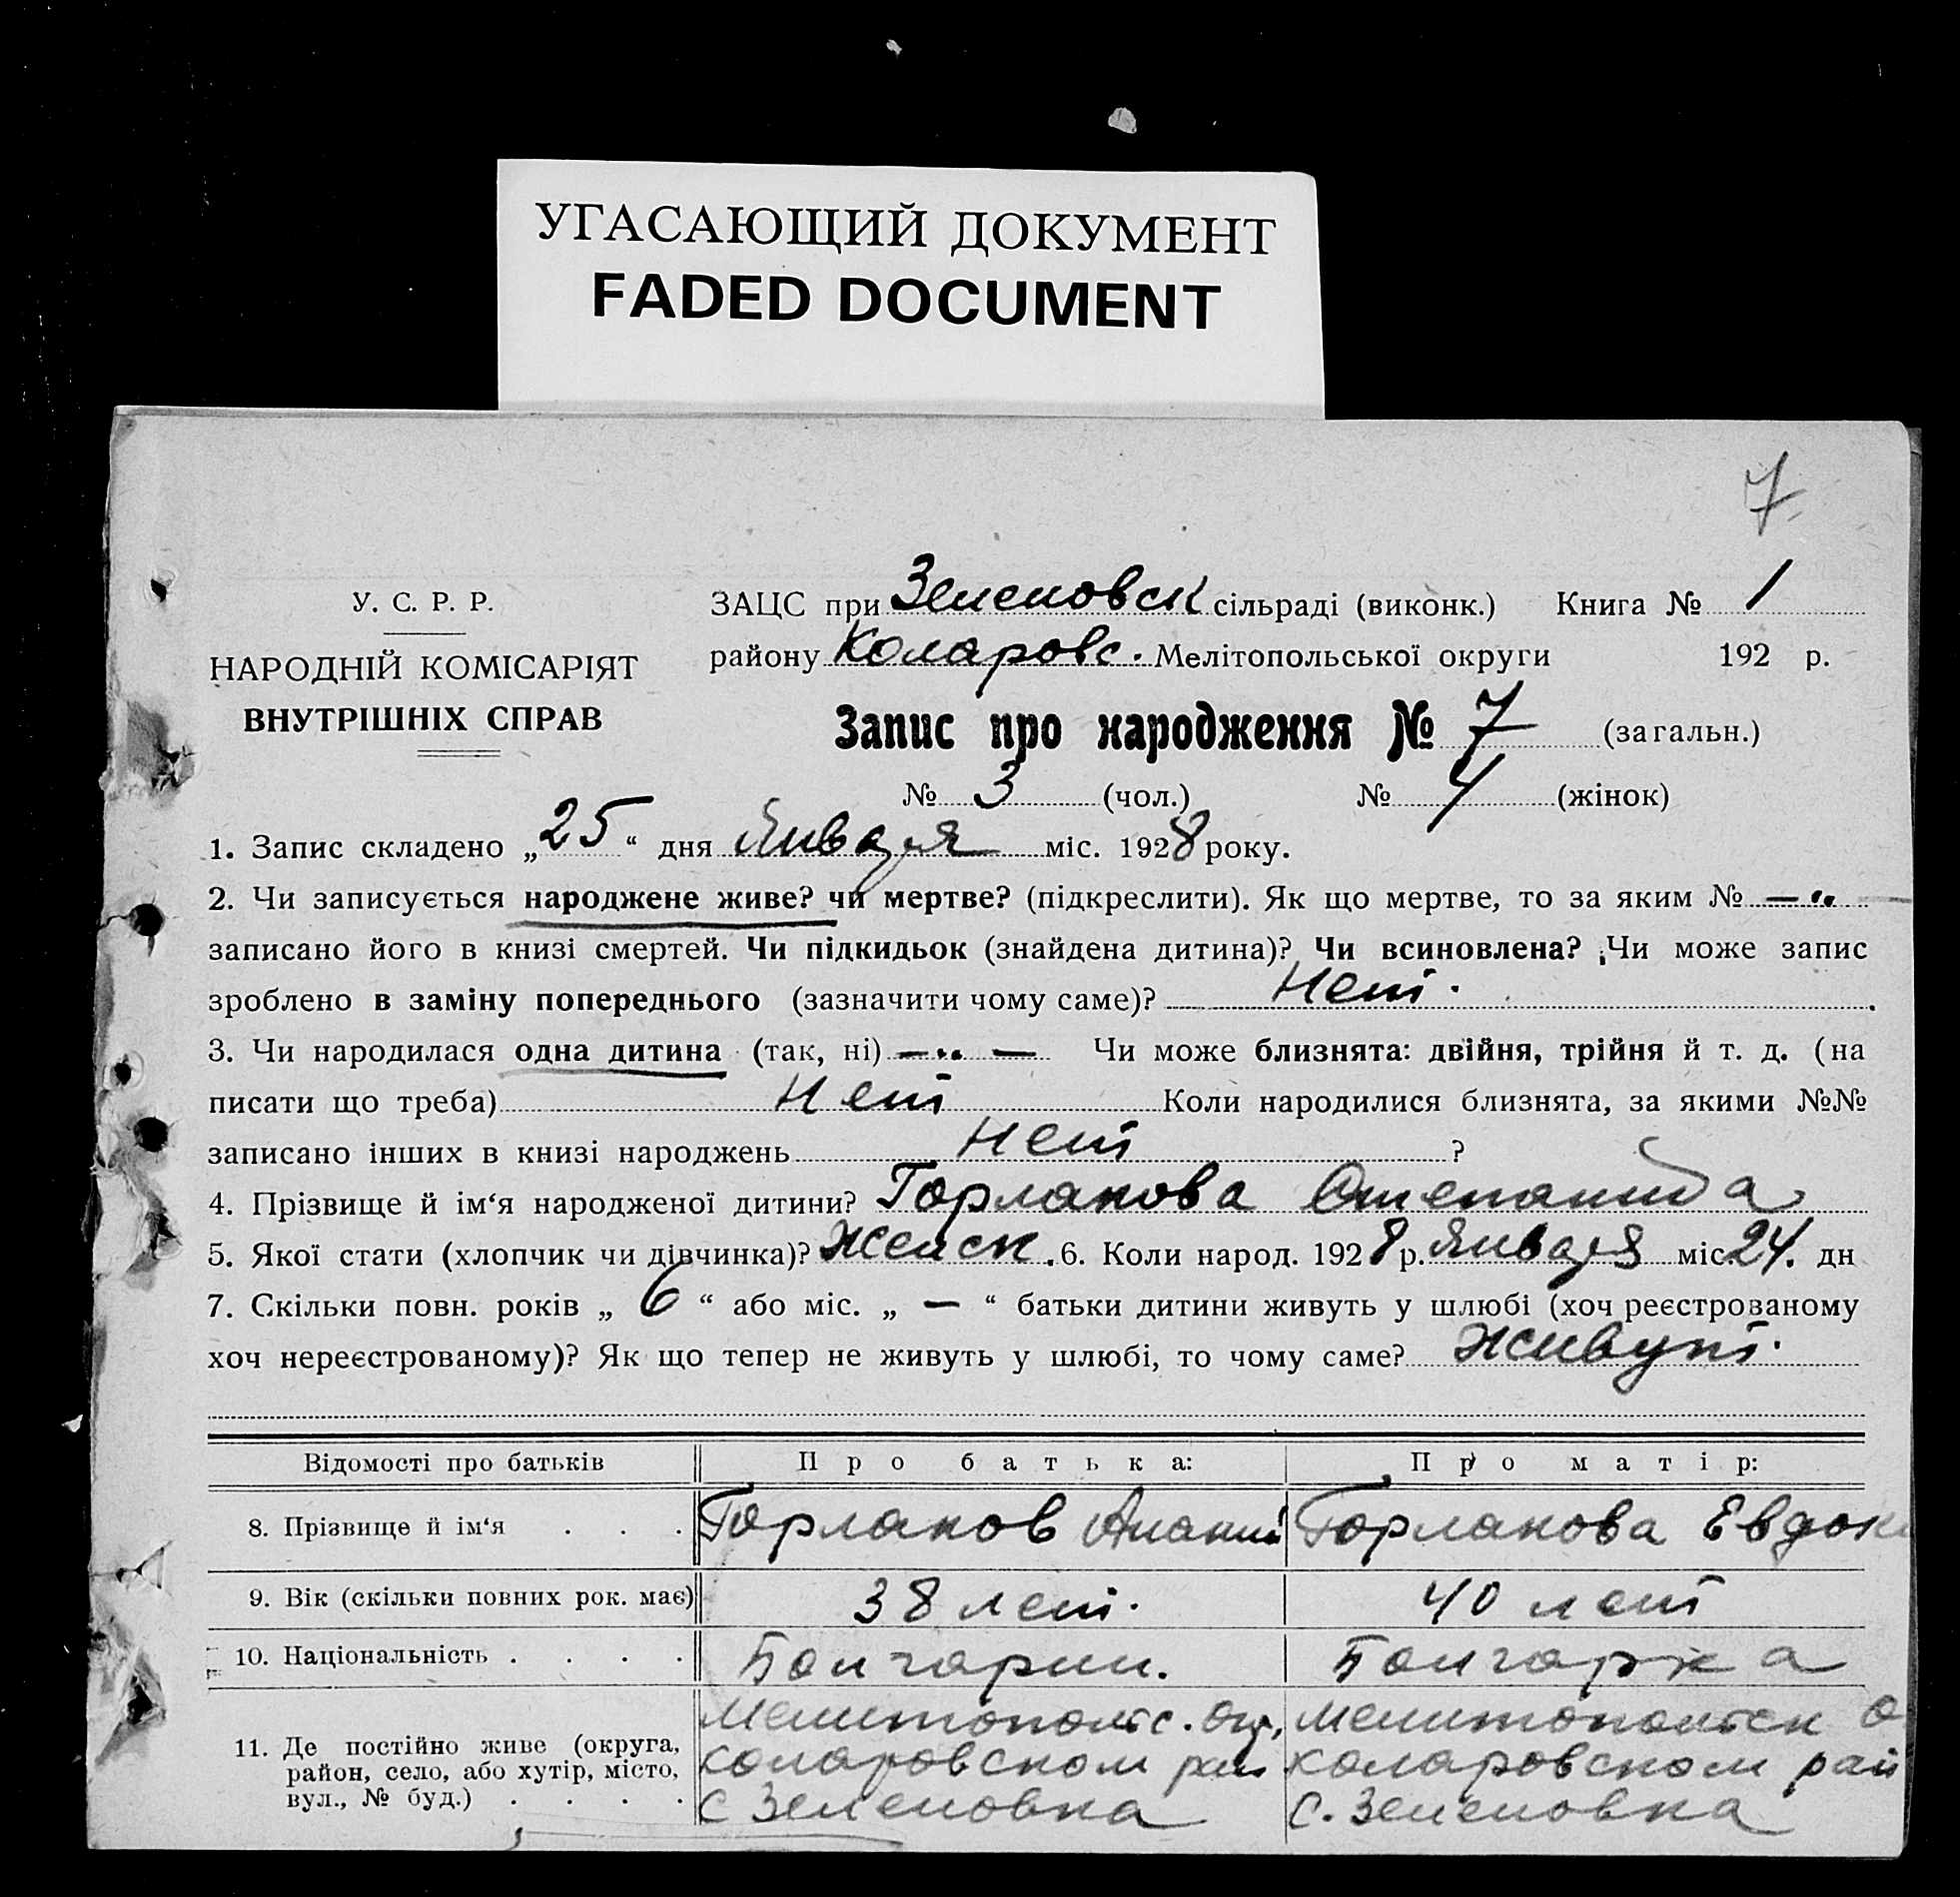 УГАСАЮЩИЙ ДОКУМЕНТ
FADED DOCUMENT
7
У. С. Р. Р.
НАРОДНІЙ КОМІСАРІЯТ
ВНУТРІШНІХ СПРАВ
ЗАЦС при Зеленовск сільраді (виконк.) Книга № 1
району Коларовс. Мелітопольської округи 192 р.
Запис про народження № 7 (загальн.)
№ 3 (чол.) № 4 (жінок)
1. Запис складено „25“ дня Января міс. 1928 року.
2. Чи записується народжене живе? чи мертве? (підкреслити). Як що мертве, то за яким № —"
записано його в книзі смертей. Чи підкидьок (знайдена дитина)? Чи всиновлена? Чи може запис
зроблено в заміну попереднього (зазначити чому саме)? Нет.
3. Чи народилася одна дитина (так, ні) —"— Чи може близнята: двійня, трійня й т. д. (на
писати що треба) Нет Коли народилися близнята, за якими №№
записано інших в книзі народжень Нет ?
4. Прізвище й ім‘я народженої дитини? Горланова Степанида
5. Якої стати (хлопчик чи дівчинка)? Женск. 6. Коли народ. 1928 р. Января міс. 24. дн
7. Скільки повн. років „ 6 “ або міс. „ — “ батьки дитини живуть у шлюбі (хоч реєстрованому
хоч нереєстрованому)? Як що тепер не живуть у шлюбі, то чому саме? Живут.
Відомості про батьків Про батька: Про матір:
8. Прізвище й ім‘я . . . Горланов Ананий Горланова Евдоки
9. Вік (скільки повних рок. має) 38 лет. 40 лет
10. Національність . . . . Болгарин. Болгарка
11. Де постійно живе (округа, район, село, або хутір, місто, вул., № буд.) . . . .
Мелитопольс. окр,
коларовском рай
с Зеленовка
Мелитопольск о
коларовском рай
с. Зеленовка